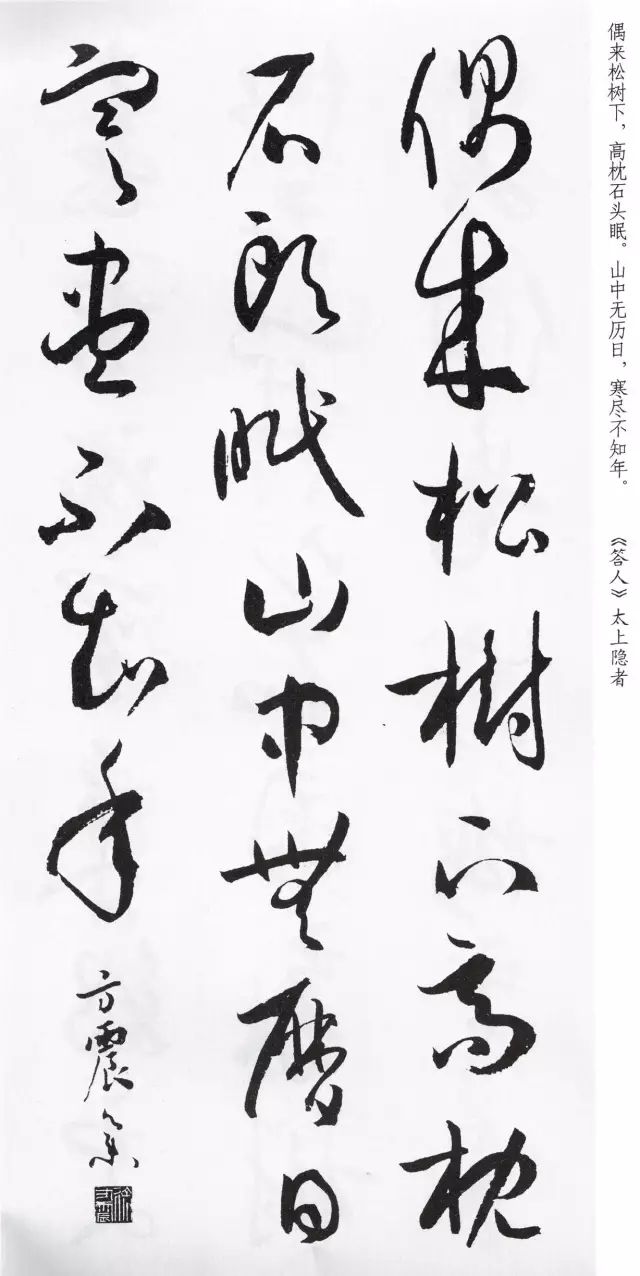 偶来松树下，高枕石头眠。山中无历日，寒尽不知年。 《答人》太上隐者
偶来松樹下高枕
石頭眠山中無曆日
寒盡不知年
方震篆